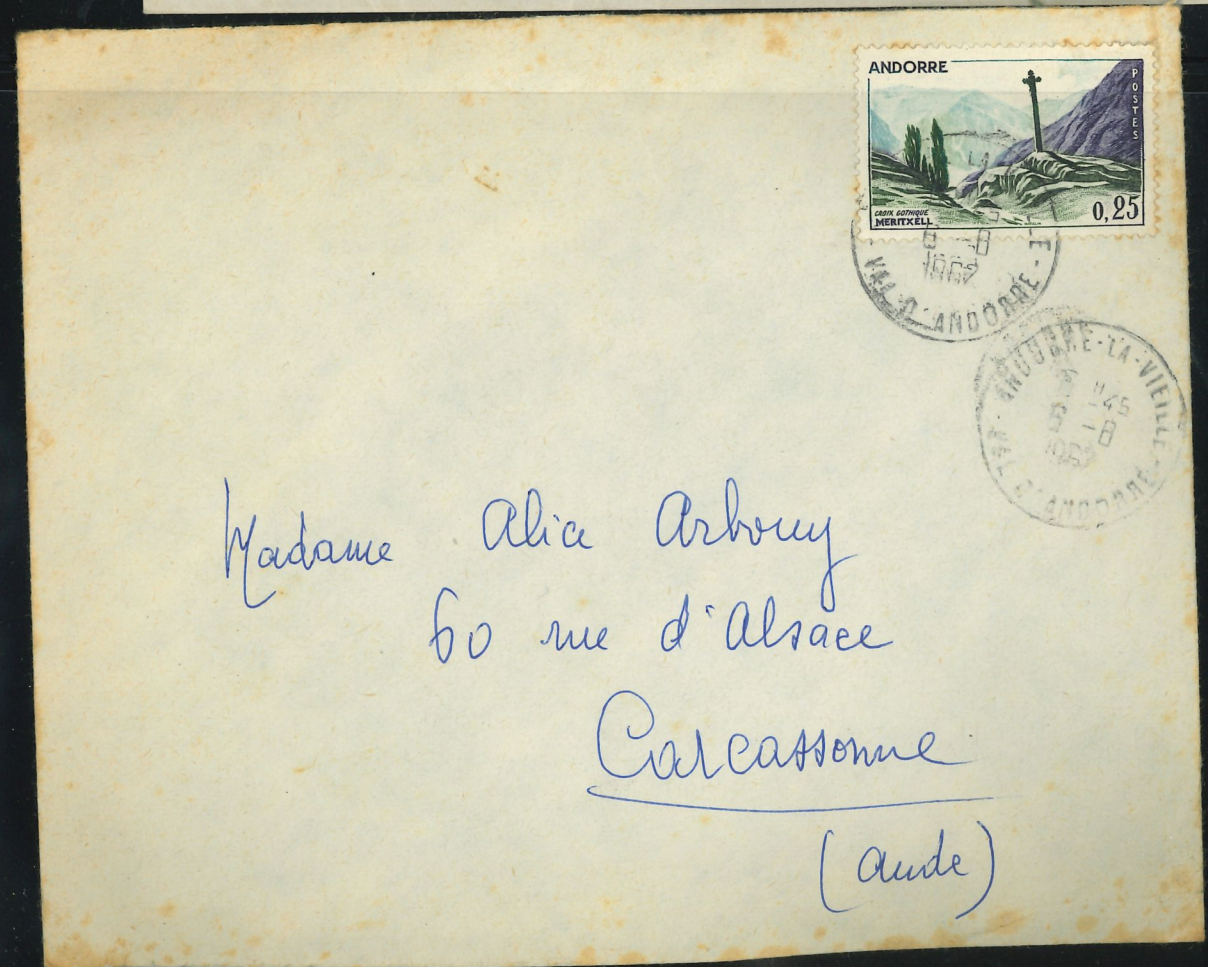 ANDORRE
POSTES
CROIX GOTHIQUE
MERITXELL
0,25
LA
LLE
6 -8
1962
- VAL D'ANDORRE -
ANDORRE-LA-VIEILLE
45
6 -8
1962
- VAL D'ANDORRE -
Madame Alice Arbouy
60 rue d'Alsace
Carcassonne
(Aude)